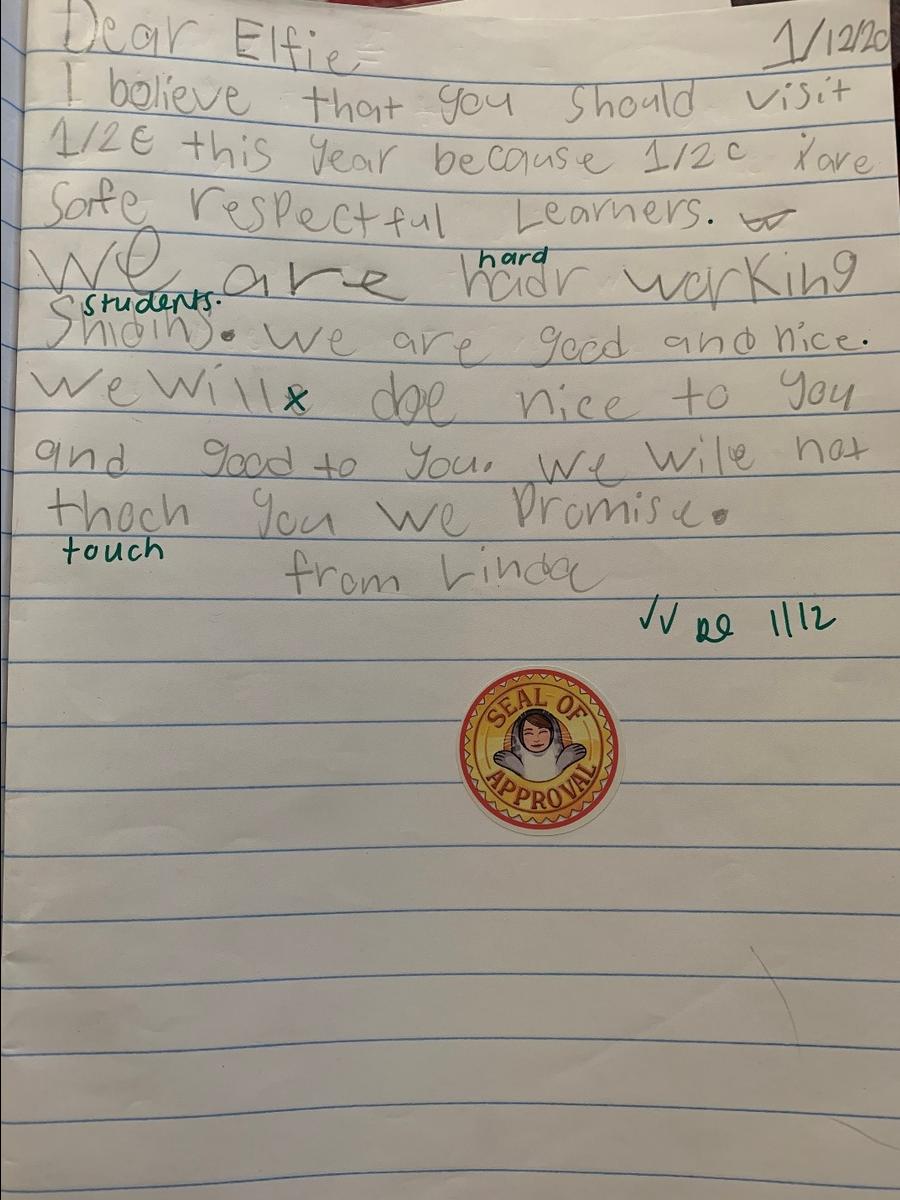 Dear Elfie 1/12/20
I bolieve that you should visit
1/2€ this year because 1/2c are
Safe respectful Learners.
hard
We are hadr working
students.
We are good and nice.
We will doe nice to you
and good to you. We wile not
thoch you we Promise.
touch
from Linda
✓✓ 1/12
SEAL OF
APPROVAL